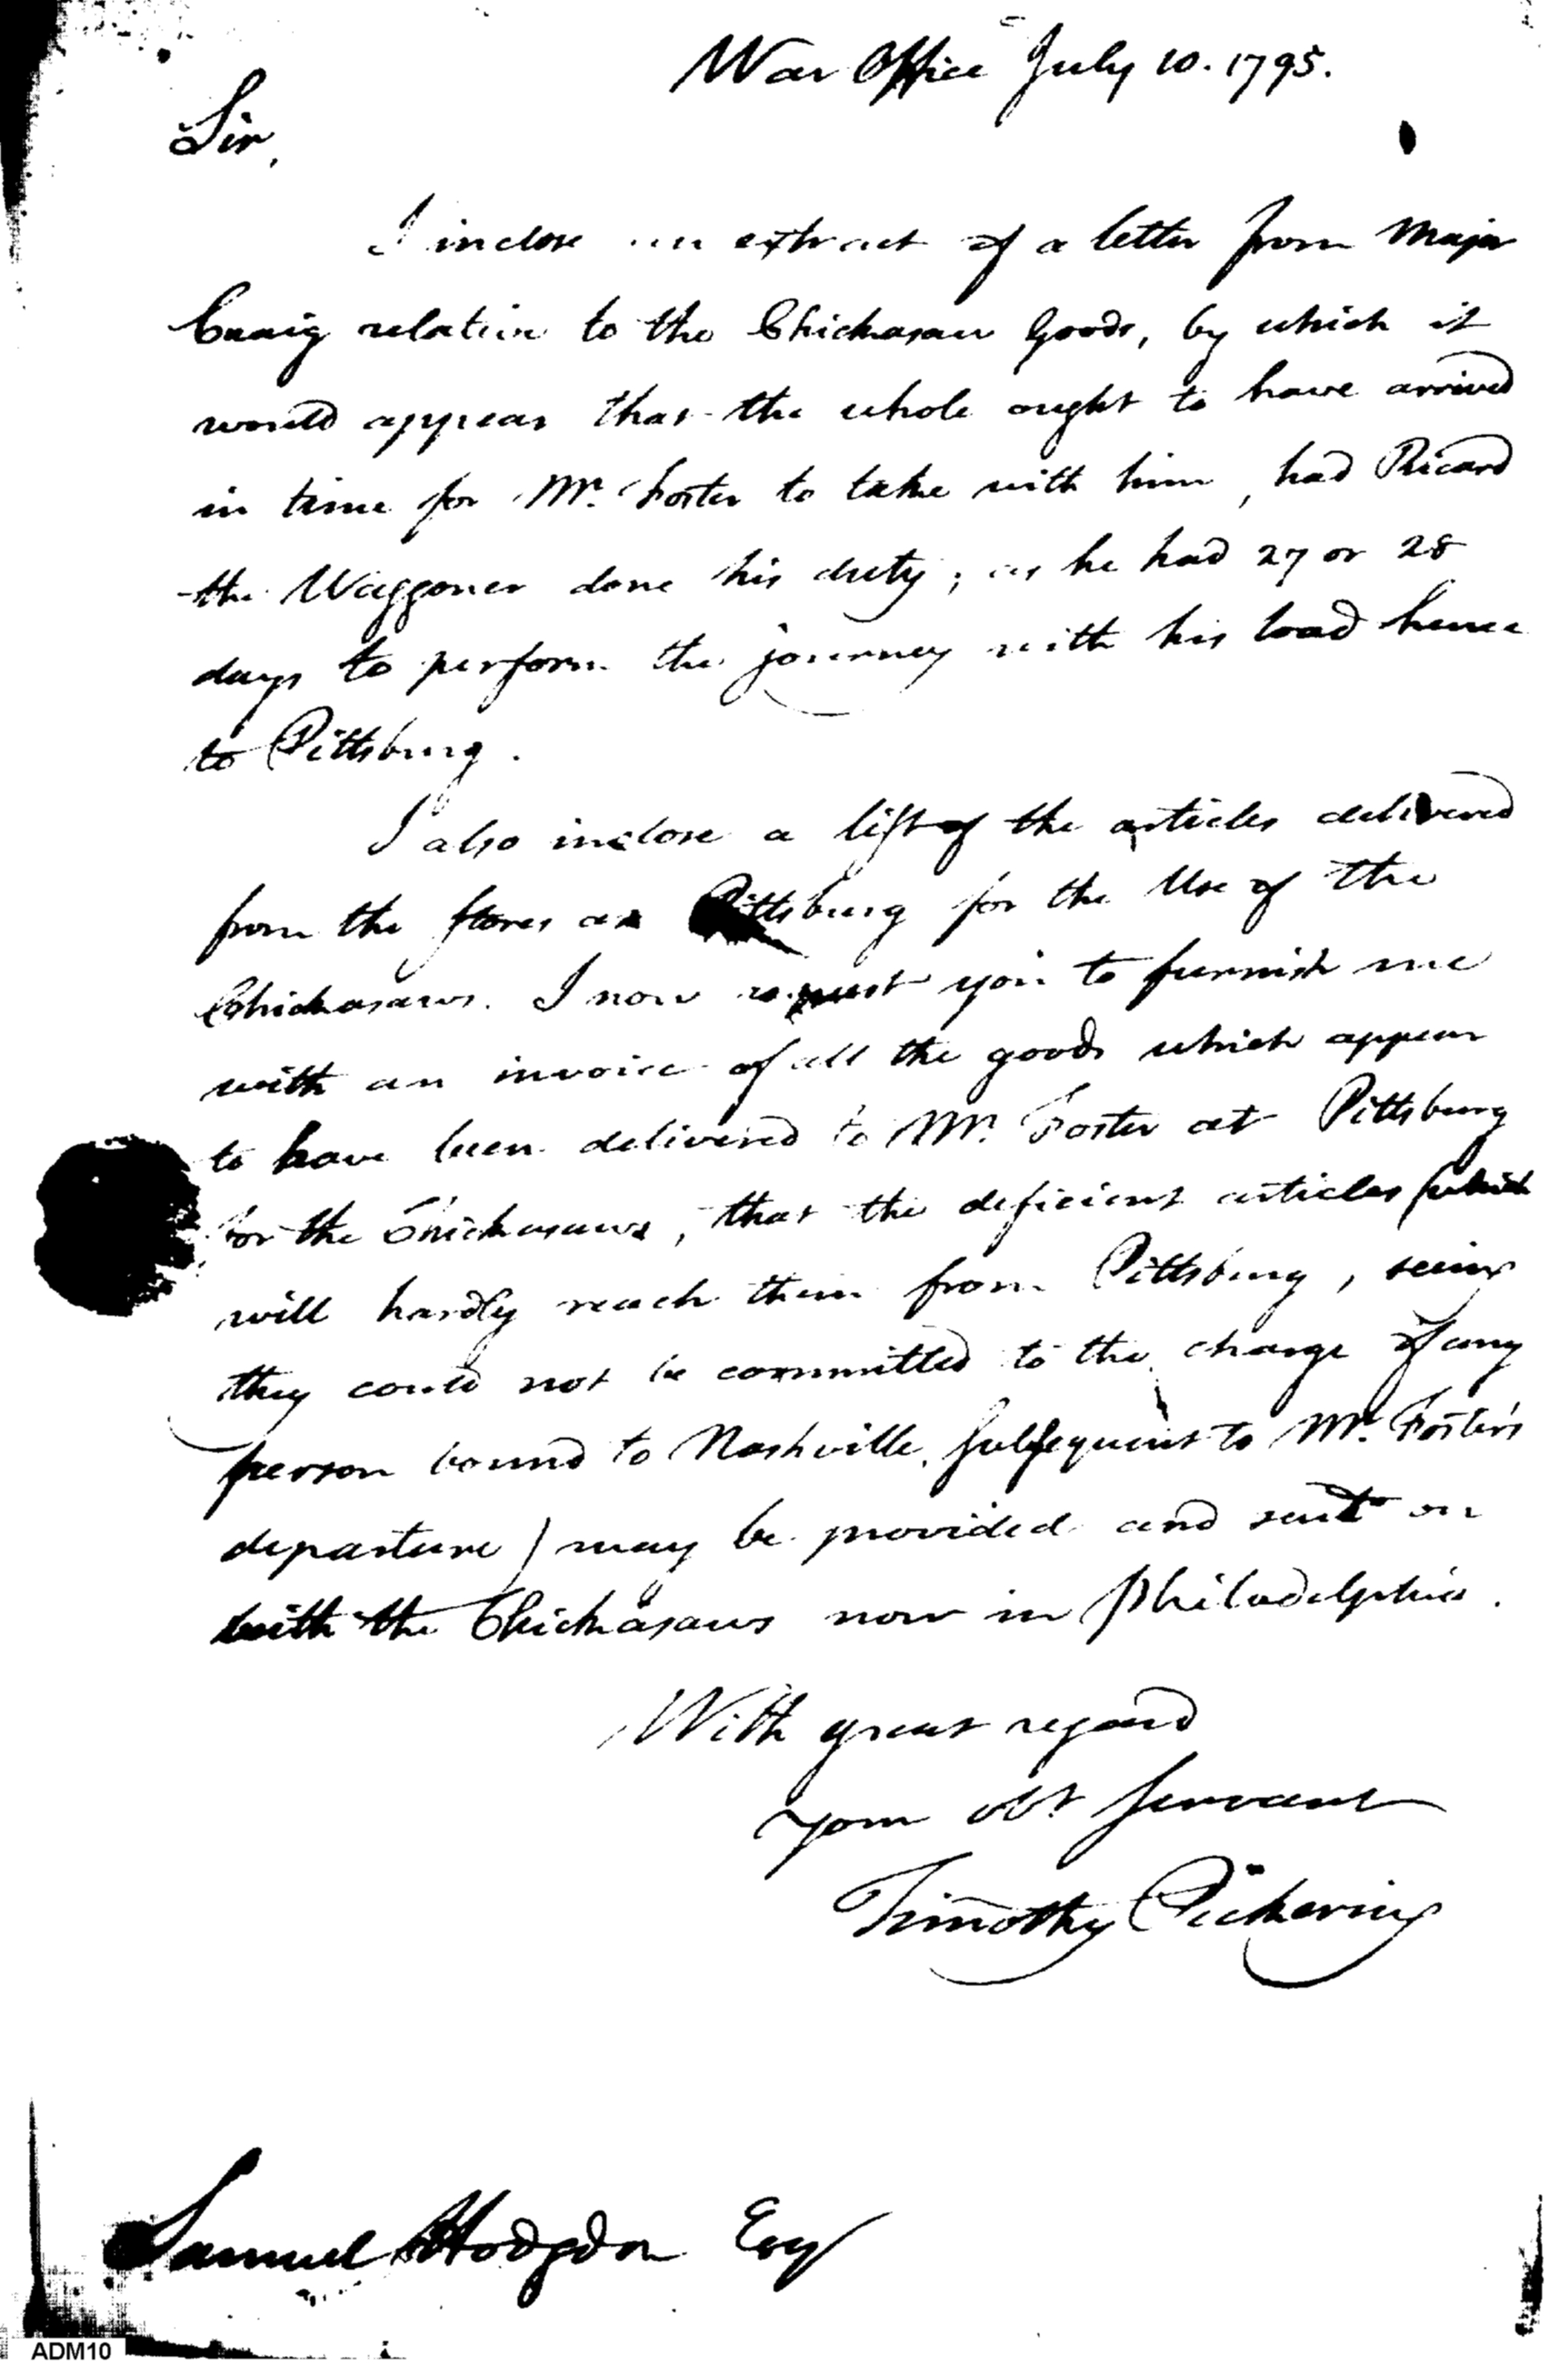 War Office July 10. 1795.
Sir,
I inclose an extract of a letter from Major
Craig relative to the Chickasaw Goods, by which it
would appear that the whole ought to have arrived
in time for Mr. Foster to take with him, had Ricard
the Waggoner done his duty; as he had 27 or 28
days to perform the journey with his load hence
to Pittsburg.
I also inclose a list of the articles delivered
from the stores at Pittsburg for the Use of the
Chickasaws. I now request you to furnish me
with an invoice of all the goods which appear
to have been delivered to Mr. Foster at Pittsburg
for the Chickasaws, that the deficient articles (which
will hardly reach them from Pittsburg, seeing
they could not be committed to the charge of any
person bound to Nashville, subsequent to Mr. Foster's
departure) may be provided and sent on
with the Chickasaws now in Philadelphia.
With great regard
your obt servant
Timothy Pickering
Samuel Hodgdon Esq
ADM10